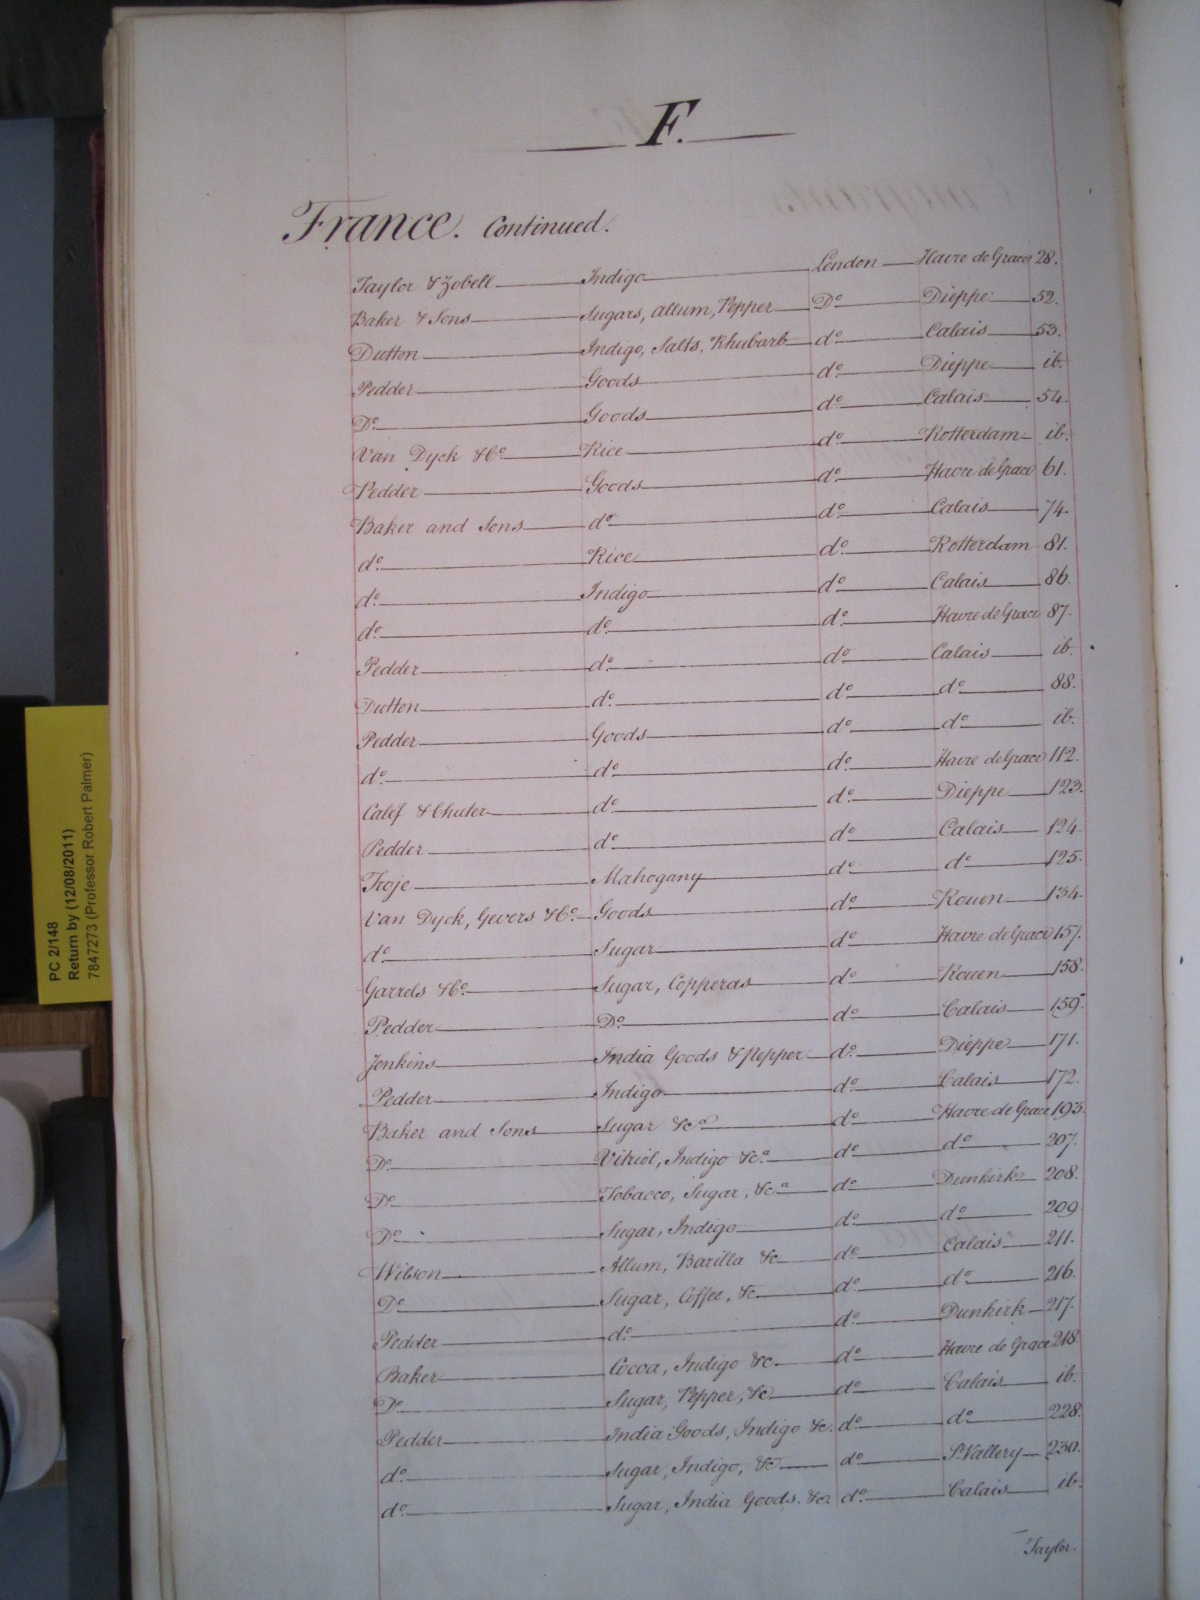 F.
France. Continued.
Taylor & Zobell Indigo London Havre de Grace 28.
Baker & Sons Sugars, Allum, Pepper Do. Dieppe 52.
Dutton Indigo, Salts, Rhubarb do. Calais 53.
Pedder Goods do. Dieppe ib.
Do. Goods do. Calais 54.
Van Dyck & Co. Rice do. Rotterdam ib.
Pedder Goods do. Havre de Grace 61.
Baker and Sons do. do. Calais 74.
do. Rice do. Rotterdam 81.
do. Indigo do. Calais 86.
do. do. do. Havre de Grace 87.
Pedder do. do. Calais ib.
Dutton do. do. do. 88.
Pedder Goods do. do. ib.
do. do. do. Havre de Grace 112.
Calef & Chuter do. do. Dieppe 123.
Pedder do. do. Calais 124.
Troje Mahogany do. do. 125.
Van Dyck, Gevers & Co. Goods do. Rouen 134.
do. Sugar do. Havre de Grace 157.
Garrels & Co. Sugar, Copperas do. Rouen 158.
Pedder Do. do. Calais 159.
Jenkins India Goods & Pepper do. Dieppe 171.
Pedder Indigo do. Calais 172.
Baker and Sons Sugar &ca. do. Havre de Grace 193.
Do. Vitriol, Indigo &ca. do. do. 207.
Do. Tobacco, Sugar, &ca. do. Dunkirk 208.
Do. Sugar, Indigo do. do. 209
Wilson Allum, Barilla &c do. Calais 211.
Do. Sugar, Coffee, &c. do. do. 216.
Pedder do. do. Dunkirk 217.
Baker Cocoa, Indigo &c. do. Havre de Grace 218
Do. Sugar, Pepper, &c do. Calais ib.
Pedder India Goods, Indigo &c. do. do. 228.
do. Sugar, Indigo, &c do. St. Vallery 230.
do. Sugar, India Goods. &c. do. Calais ib.
Taylor.
PC 2/148
Return by (12/08/2011)
7847273 (Professor Robert Palmer)